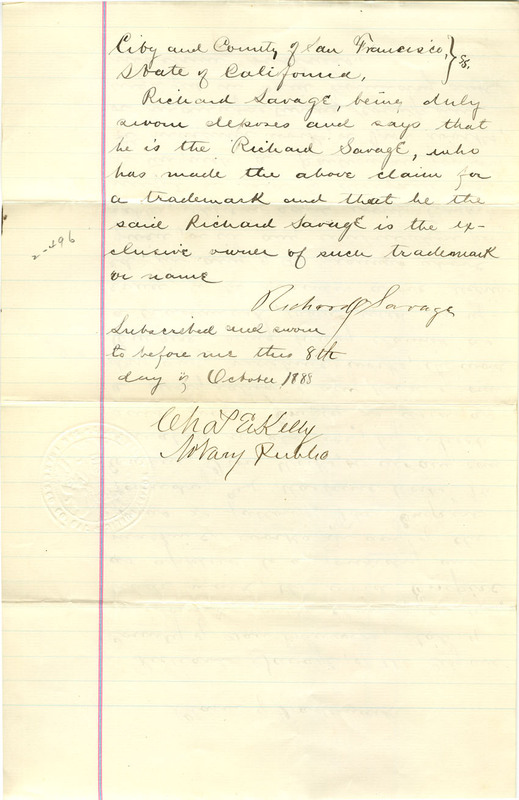 City and County of San Francisco, } ss.
State of California,
Richard Savage, being duly
sworn deposes and says that
he is the Richard Savage, who
has made the above claim for
a trademark and that he the
said Richard Savage is the ex-
clusive owner of such trademark
or name
Richard Savage
Subscribed and sworn
to before me this 8th
day of October 1888
Chas E Kelly
Notary Public
2-496